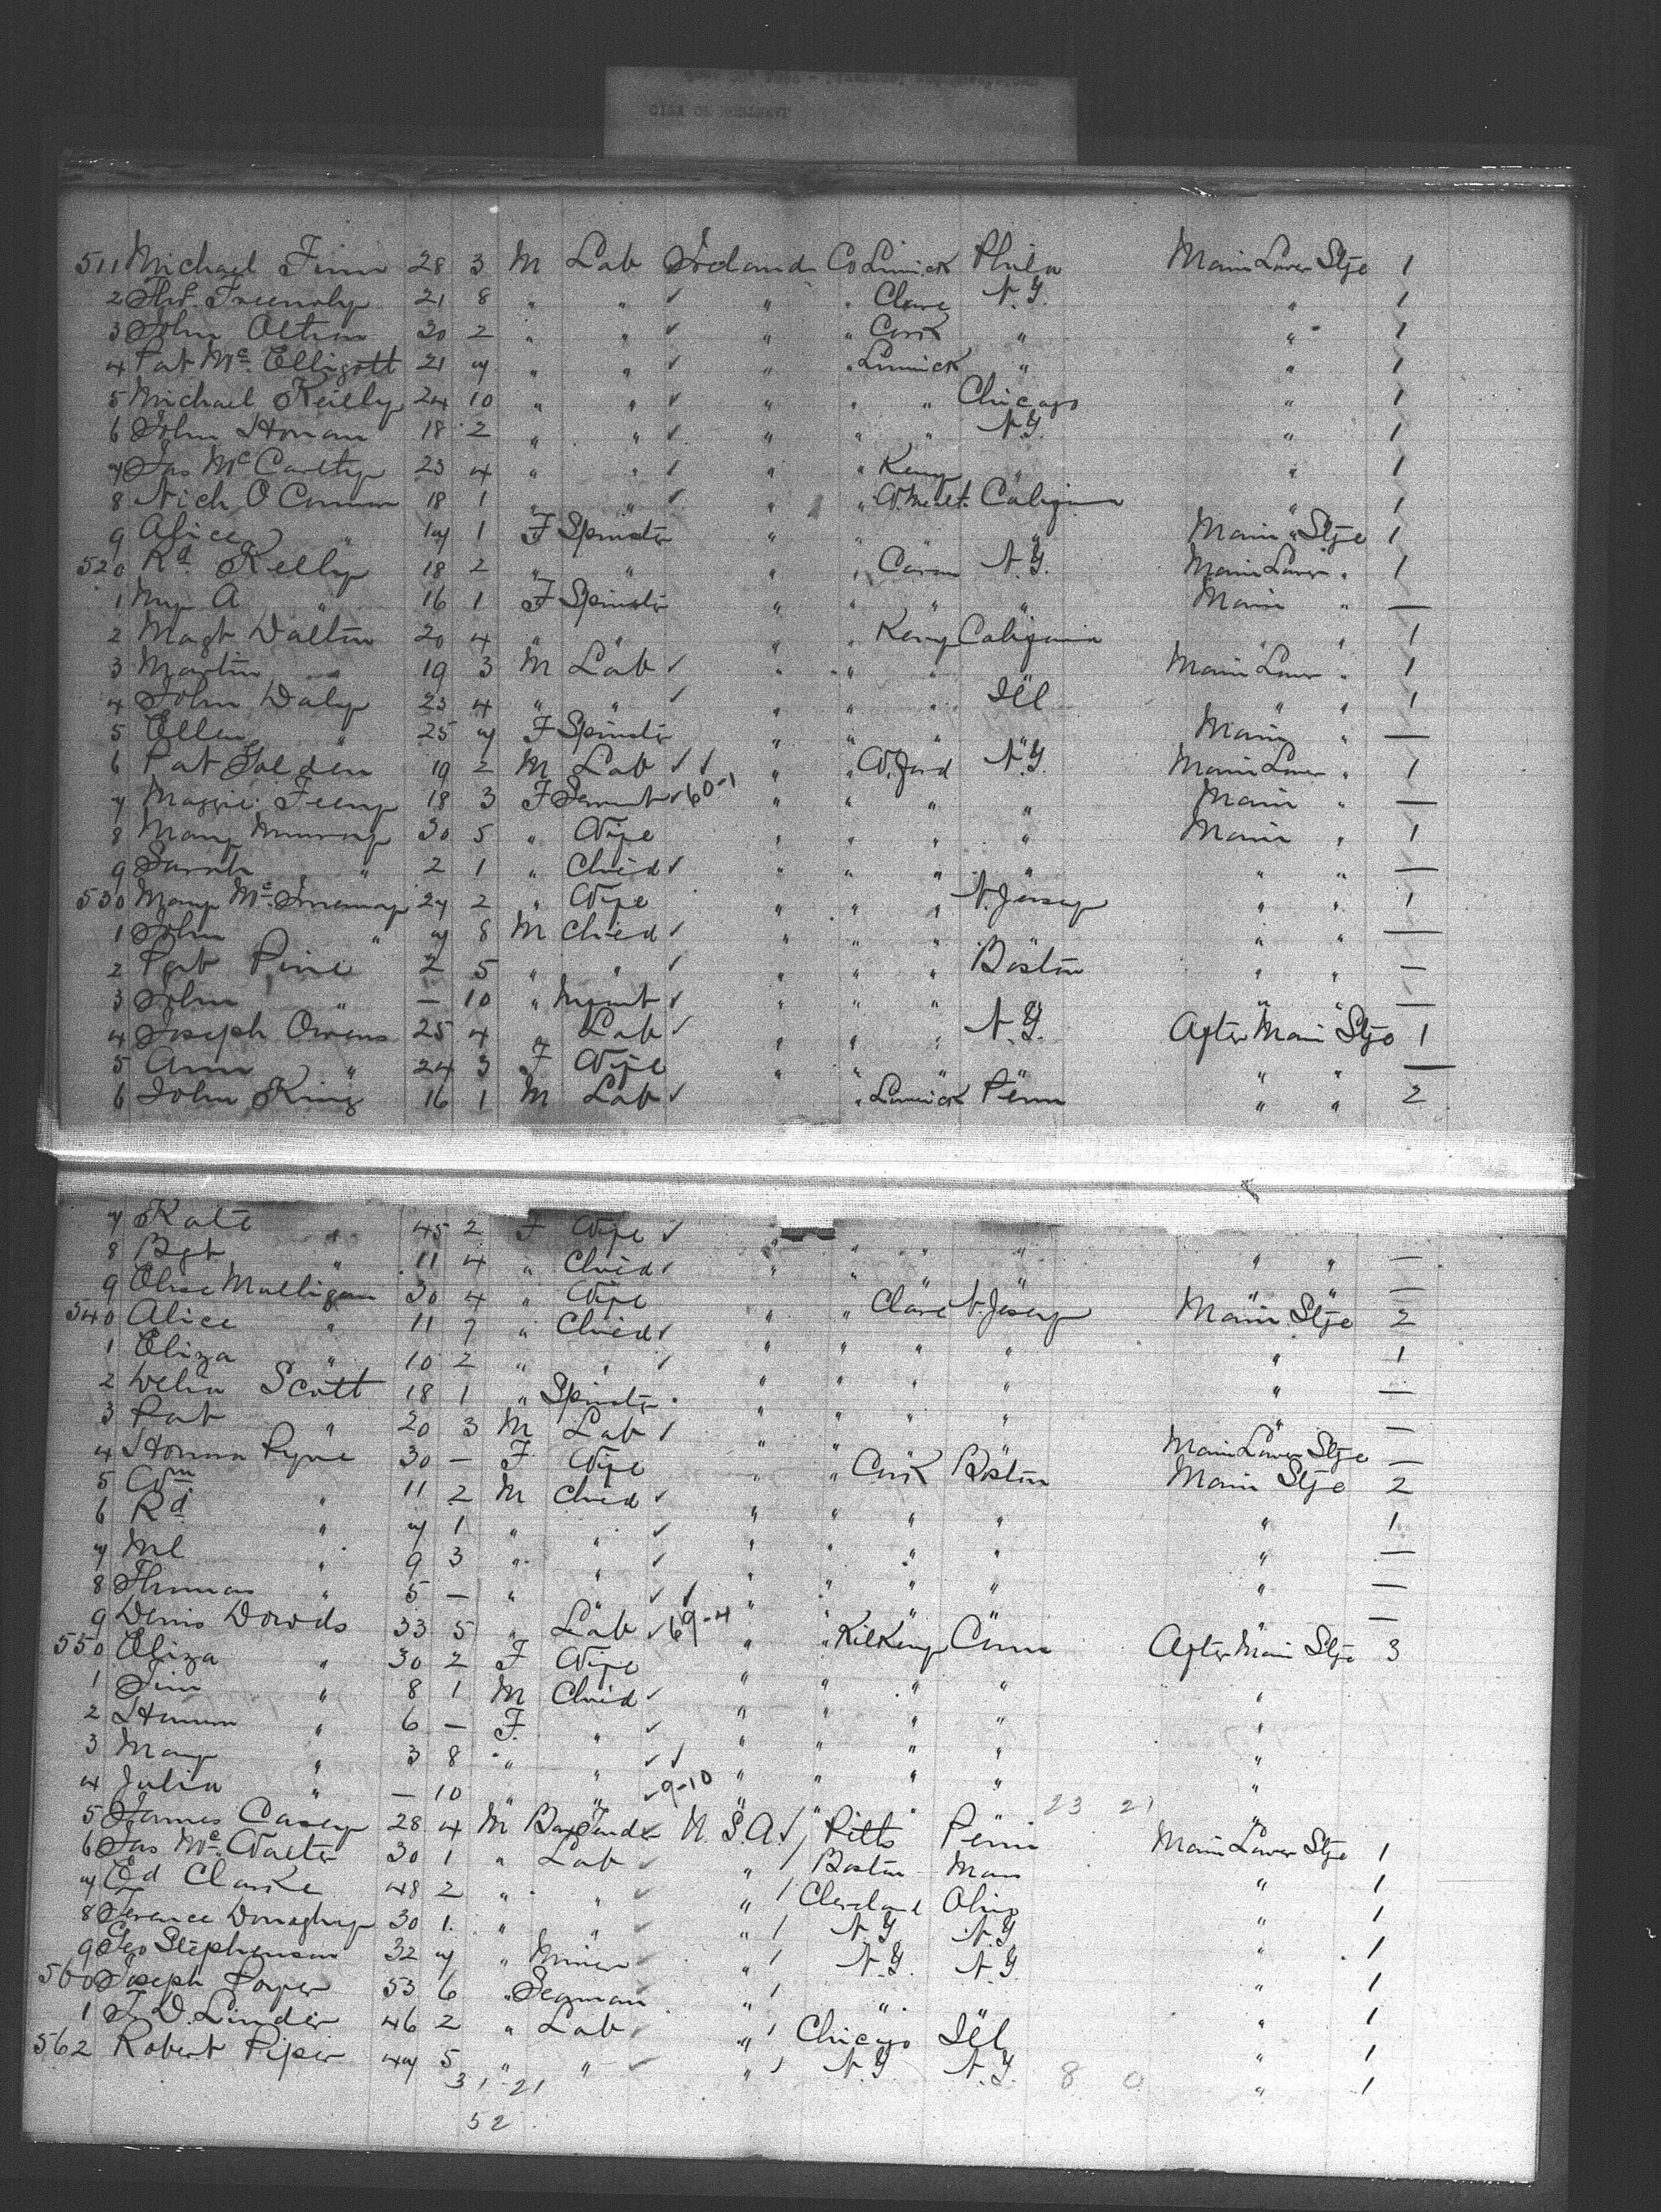 511 Michael Finn 28 3 M Lab Ireland Co Limick Phila Main Lower Stge 1
2 21 8 " " ✓ " " Clare N.Y. " 1
3 John 30 2 " " ✓ " " Cork " " 1
4 Pat Mc Elligott 21 7 " " ✓ " " Limick " " 1
5 Michael Reilly 24 10 " " ✓ " " " Chicago " 1
6 John Honan 18 2 " " ✓ " " " N.Y. " 1
7 Jas Mc Carthy 23 4 " " ✓ " " Kerry " " 1
8 Nich O Connor 18 1 " " ✓ " " W.Meath California " 1
9 Alice " 17 1 F Spinster " " " " Main " Stge 1
520 Rd Kelly 18 2 " " " " Cavan N.Y. Main Lower " 1
1 My A " 16 1 F Spinster " " " " Main " —
2 Magt Dalton 20 4 " " " " Kerry California " " 1
3 Martin " 19 3 M Lab ✓ " " " " Main Lower " 1
4 John Daly 23 4 " " ✓ " " " Ill " " 1
5 Ellen " 25 7 F Spinster " " " " Main " —
6 Pat Golden 19 2 M Lab ✓ ✓ " " W.Ford N.Y. Main Lower " 1
7 Maggie Feeny 18 3 F Servnt ✓ 60-1 " " " " Main " —
8 Mary Murray 30 5 " Wife " " " " Main " 1
9 Sarah " 2 1 " Child ✓ " " " " " " —
530 Mary Mc 27 2 " Wife " " " N. Jersey " " 1
1 John " 7 8 M Child ✓ " " " " " " —
2 Pat Pine 2 5 " " ✓ " " " Boston " " —
3 John " — 10 " Infant ✓ " " " " " " —
4 Joseph Owens 25 4 " Lab ✓ " " " N.Y. After Main Stge 1
5 Ann " 24 3 F Wife " " " " " " —
6 John King 16 1 M Lab ✓ " " Limick Penn " " 2
7 Kate " 45 2 F Wife ✓ " " " " " " —
8 Bgt " 11 4 " Child ✓ " " " " " " —
9 Mulligan 30 4 " Wife " " Clare N. Jersey Main Stge 2
540 Alice " 11 7 " Child ✓ " " " " " 1
1 Eliza " 10 2 " " ✓ " " " " " —
2 Delia Scott 18 1 " Spinster " " " " " —
3 Pat " 20 3 M Lab ✓ " " " " Main Lower Stge —
4 Honora Pyne 30 — F Wife " " Cork Boston Main Stge 2
5 Wm " 11 2 M Child ✓ " " " " " 1
6 Rd " 7 1 " " ✓ " " " " " —
7 Ml " 9 3 " " ✓ " " " " " —
8 Thomas " 5 — " " ✓ ✓ " " " " " —
9 Denis Dowds 33 5 " Lab ✓ 69-4 " " Kilkeny Conn After Main Stge 3
550 Eliza " 30 2 F Wife " " " " "
1 Jim " 8 1 M Child ✓ " " " " "
2 " 6 — F " ✓ " " " " "
3 Mary " 3 8 " " ✓ ✓ " " " " "
4 Julia " — 10 " " ✓ 9-10 " " " " " 23 21
5 James Casey 28 4 M Bar Tender U.S.A. Pitts Penn Main Lower Stge 1
6 Jas Mc Walter 30 1 " Lab ✓ " Boston Mass " 1
7 Ed Clarke 48 2 " " ✓ " Cleveland Ohio " 1
8 Terence Donaghy 30 1 " " ✓ " N.Y. N.Y. " 1
9 Geo Stephenson 32 7 " Miner ✓ " N.Y. N.Y. " 1
560 Joseph 53 6 " Seaman " " " 1
1 Linder 46 2 " Lab ✓ " Chicago Ill " 1
562 Robert Piper 47 5 " " ✓ " N.Y. N.Y. " 1
31 21 8 0
52